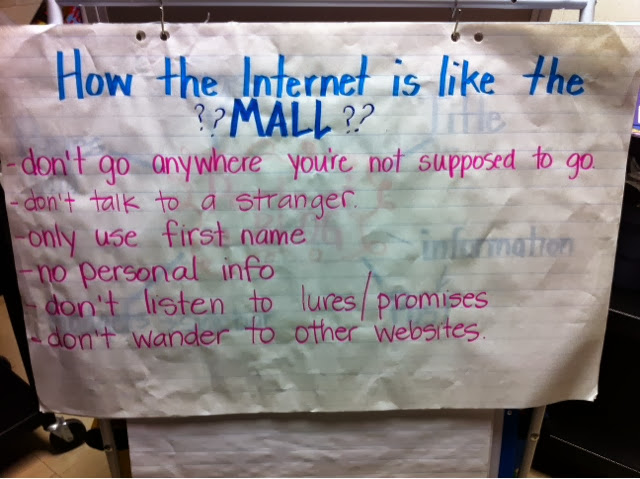 How the Internet is like the
??MALL??
-don't go anywhere you're not supposed to go.
-don't talk to a stranger.
-only use first name
-no personal info
-don't listen to lures/promises
-don't wander to other websites.
Title
information